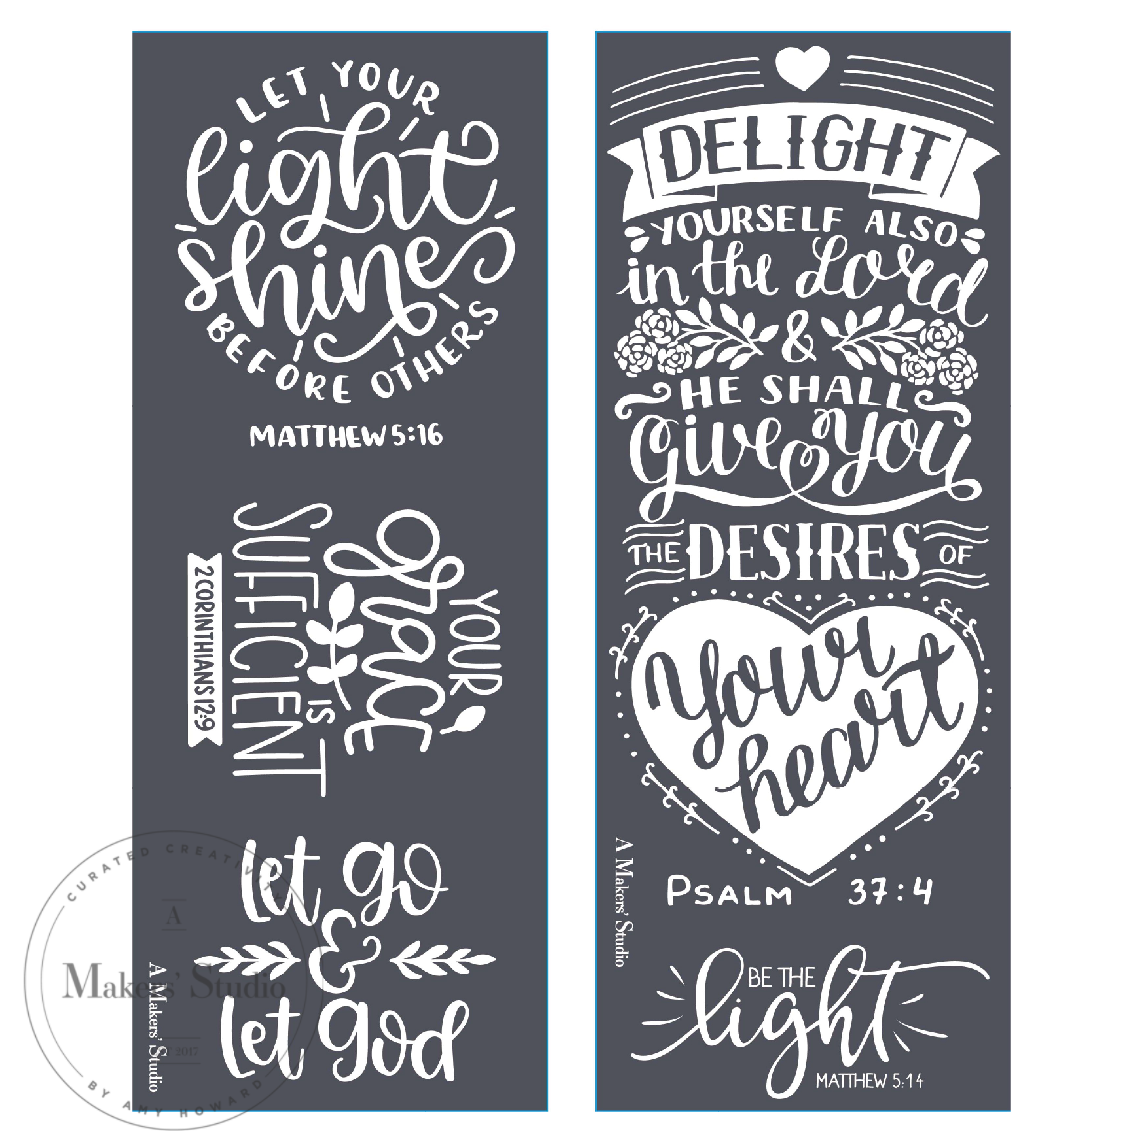 LET YOUR
light
shine
BEFORE OTHERS
MATTHEW 5:16
YOUR
grace
IS
SUFFICIENT
2 CORINTHIANS 12:9
let go
&
let god
A Makers' Studio
CURATED CREATIVITY
A
Makers' Studio
2017
BY AMY HOWARD
DELIGHT
YOURSELF ALSO
in the Lord
&
HE SHALL
Give You
THE DESIRES OF
Your
heart
PSALM 37:4
A Makers' Studio
BE THE
light
MATTHEW 5:14